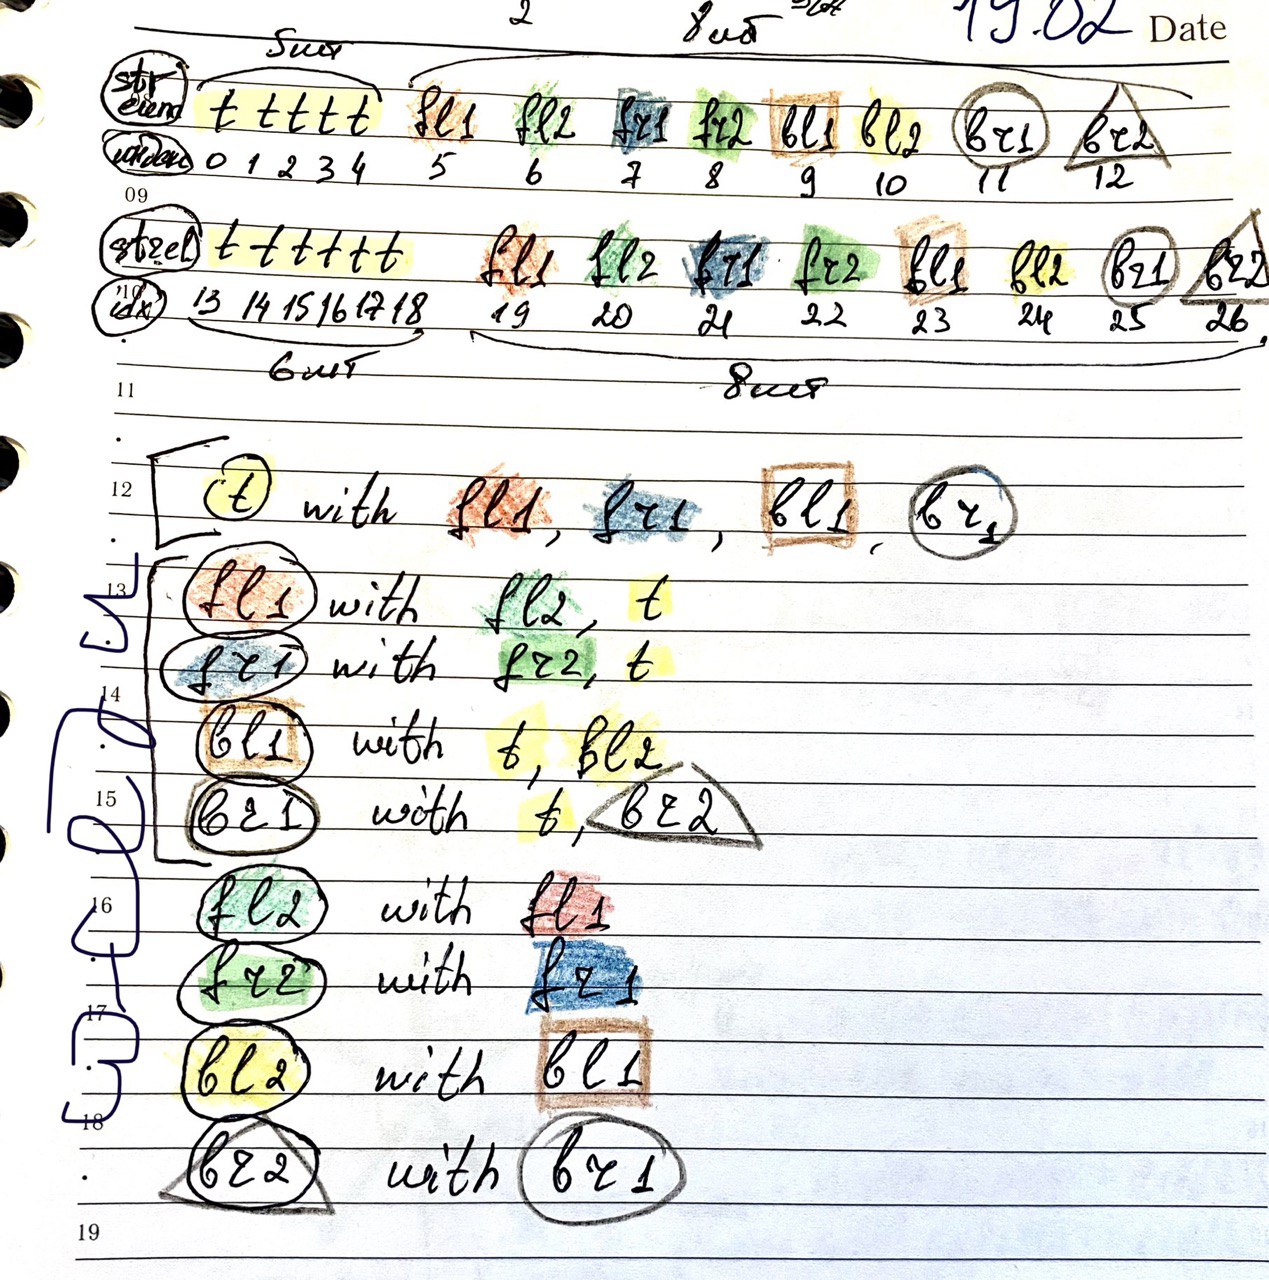 2 8шт 19.02 Date
5шт
t t t t t fl1 fl2 fr1 fr2 bl1 bl2 br1 br2
индекс 0 1 2 3 4 5 6 7 8 9 10 11 12
09
t t t t t t fl1 fl2 fr1 fr2 bl1 bl2 br1 br2
10 idx 13 14 15 16 17 18 19 20 21 22 23 24 25 26
6шт 8шт
11
12 t with fl1, fr1, bl1, br1
13 fl1 with fl2, t
fr1 with fr2, t
14
bl1 with t, bl2
15 br1 with t, br2
16 fl2 with fl1
fr2 with fr1
17
bl2 with bl1
18
br2 with br1
19